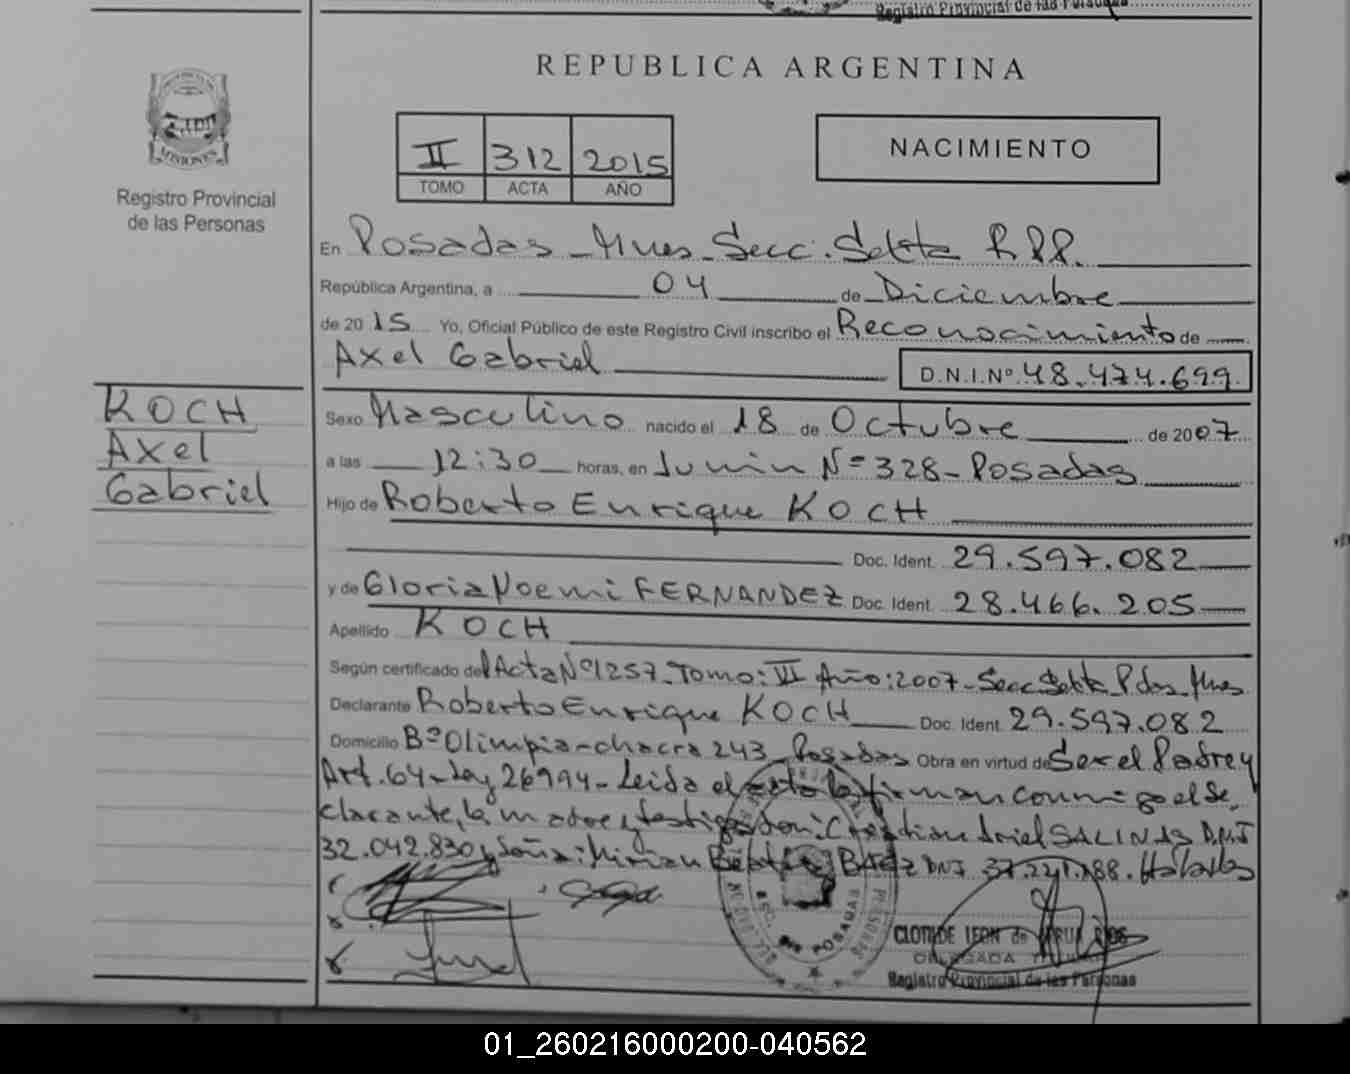 Registro Provincial de las Personas
REPUBLICA ARGENTINA
MISIONES
Registro Provincial
de las Personas
II 312 2015
TOMO ACTA AÑO
NACIMIENTO
En Posadas - Mnes - Secc. Sexta R.P.P.
República Argentina, a 04 de Diciembre
de 2015 Yo, Oficial Público de este Registro Civil inscribo el Reconocimiento de
Axel Gabriel D.N.I.Nº 48.474.699
KOCH
Axel
Gabriel
Sexo Masculino nacido el 18 de Octubre de 2007
a las 12:30 horas, en Junin Nº 328 - Posadas
Hijo de Roberto Enrique KOCH
Doc. Ident. 29.597.082
y de Gloria Noemi FERNANDEZ Doc. Ident. 28.466.205
Apellido KOCH
Según certificado del Acta Nº 1257 - Tomo: VI Año: 2007 - Secc. Sexta Pdas. Mnes
Declarante Roberto Enrique KOCH Doc. Ident. 29.597.082
Domicilio Bº Olimpia - chacra 243 - Posadas Obra en virtud de Ser el Padre y
Art. 64 - Ley 26994 - Leida el acta la firman conmigo el de
clarante, la madre y testigos don: Cristian Ariel SALINAS D.N.I
32.042.830 y Doña: Mirian Beatriz BAEZ DNI 37.221.188. Hábiles
SEC. 6ta POSADAS
CLOTILDE LEON de
DELEGADA
Registro Provincial de las Personas
01_260216000200-040562